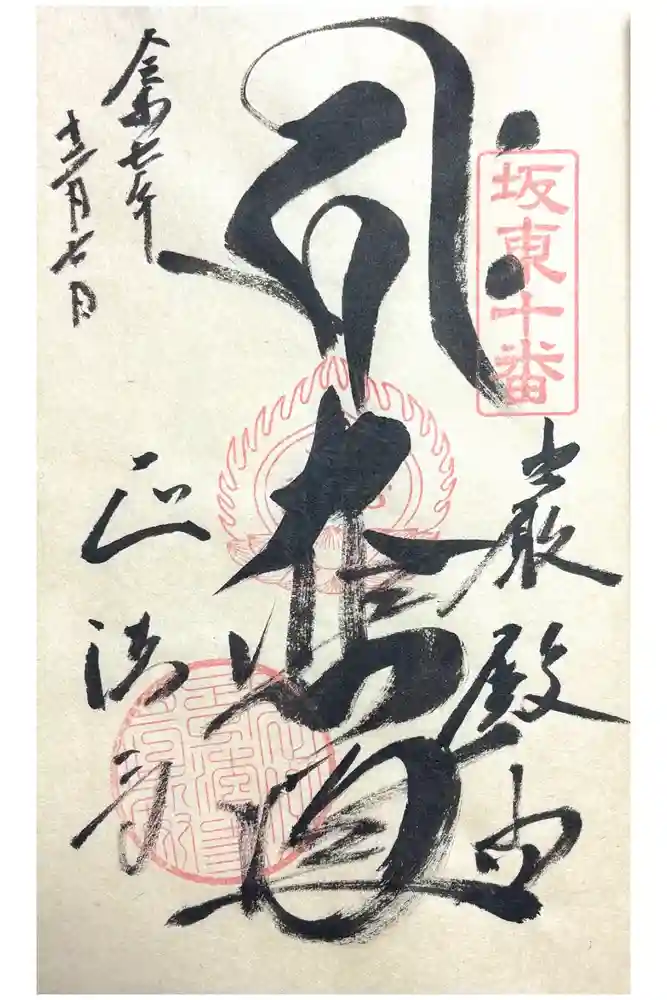 坂東十番
巌殿山
大悲
正法寺
令和七年
十二月七日